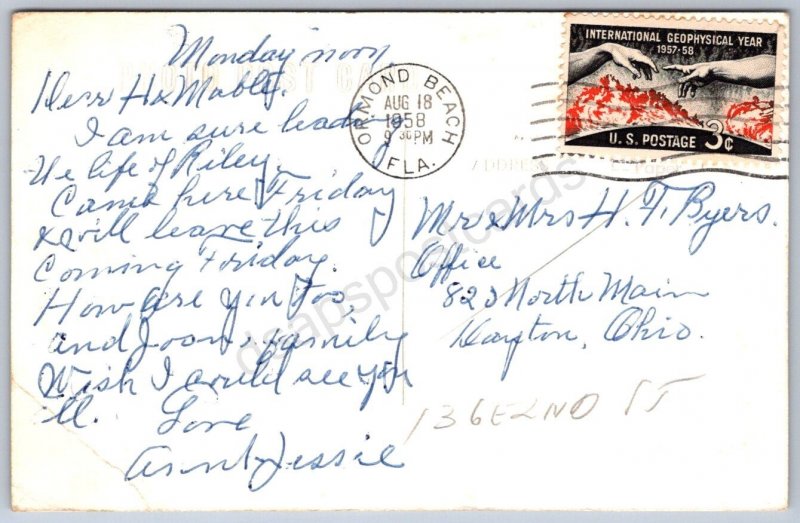 Monday noon
Dear H & Mable.
I am sure leading
the life of Riley.
Came here Friday
& will leave this
coming Friday.
How are you two,
and Joan & family
Wish I could see you
all. Love
Aunt Jessie
ORMOND BEACH
AUG 18
1958
9 30 PM
FLA.
INTERNATIONAL GEOPHYSICAL YEAR
1957-58
U.S. POSTAGE 3¢
Mr & Mrs H. F. Byers.
Office
82 North Main
Dayton, Ohio.
136 E 2ND ST
dsapspostcards